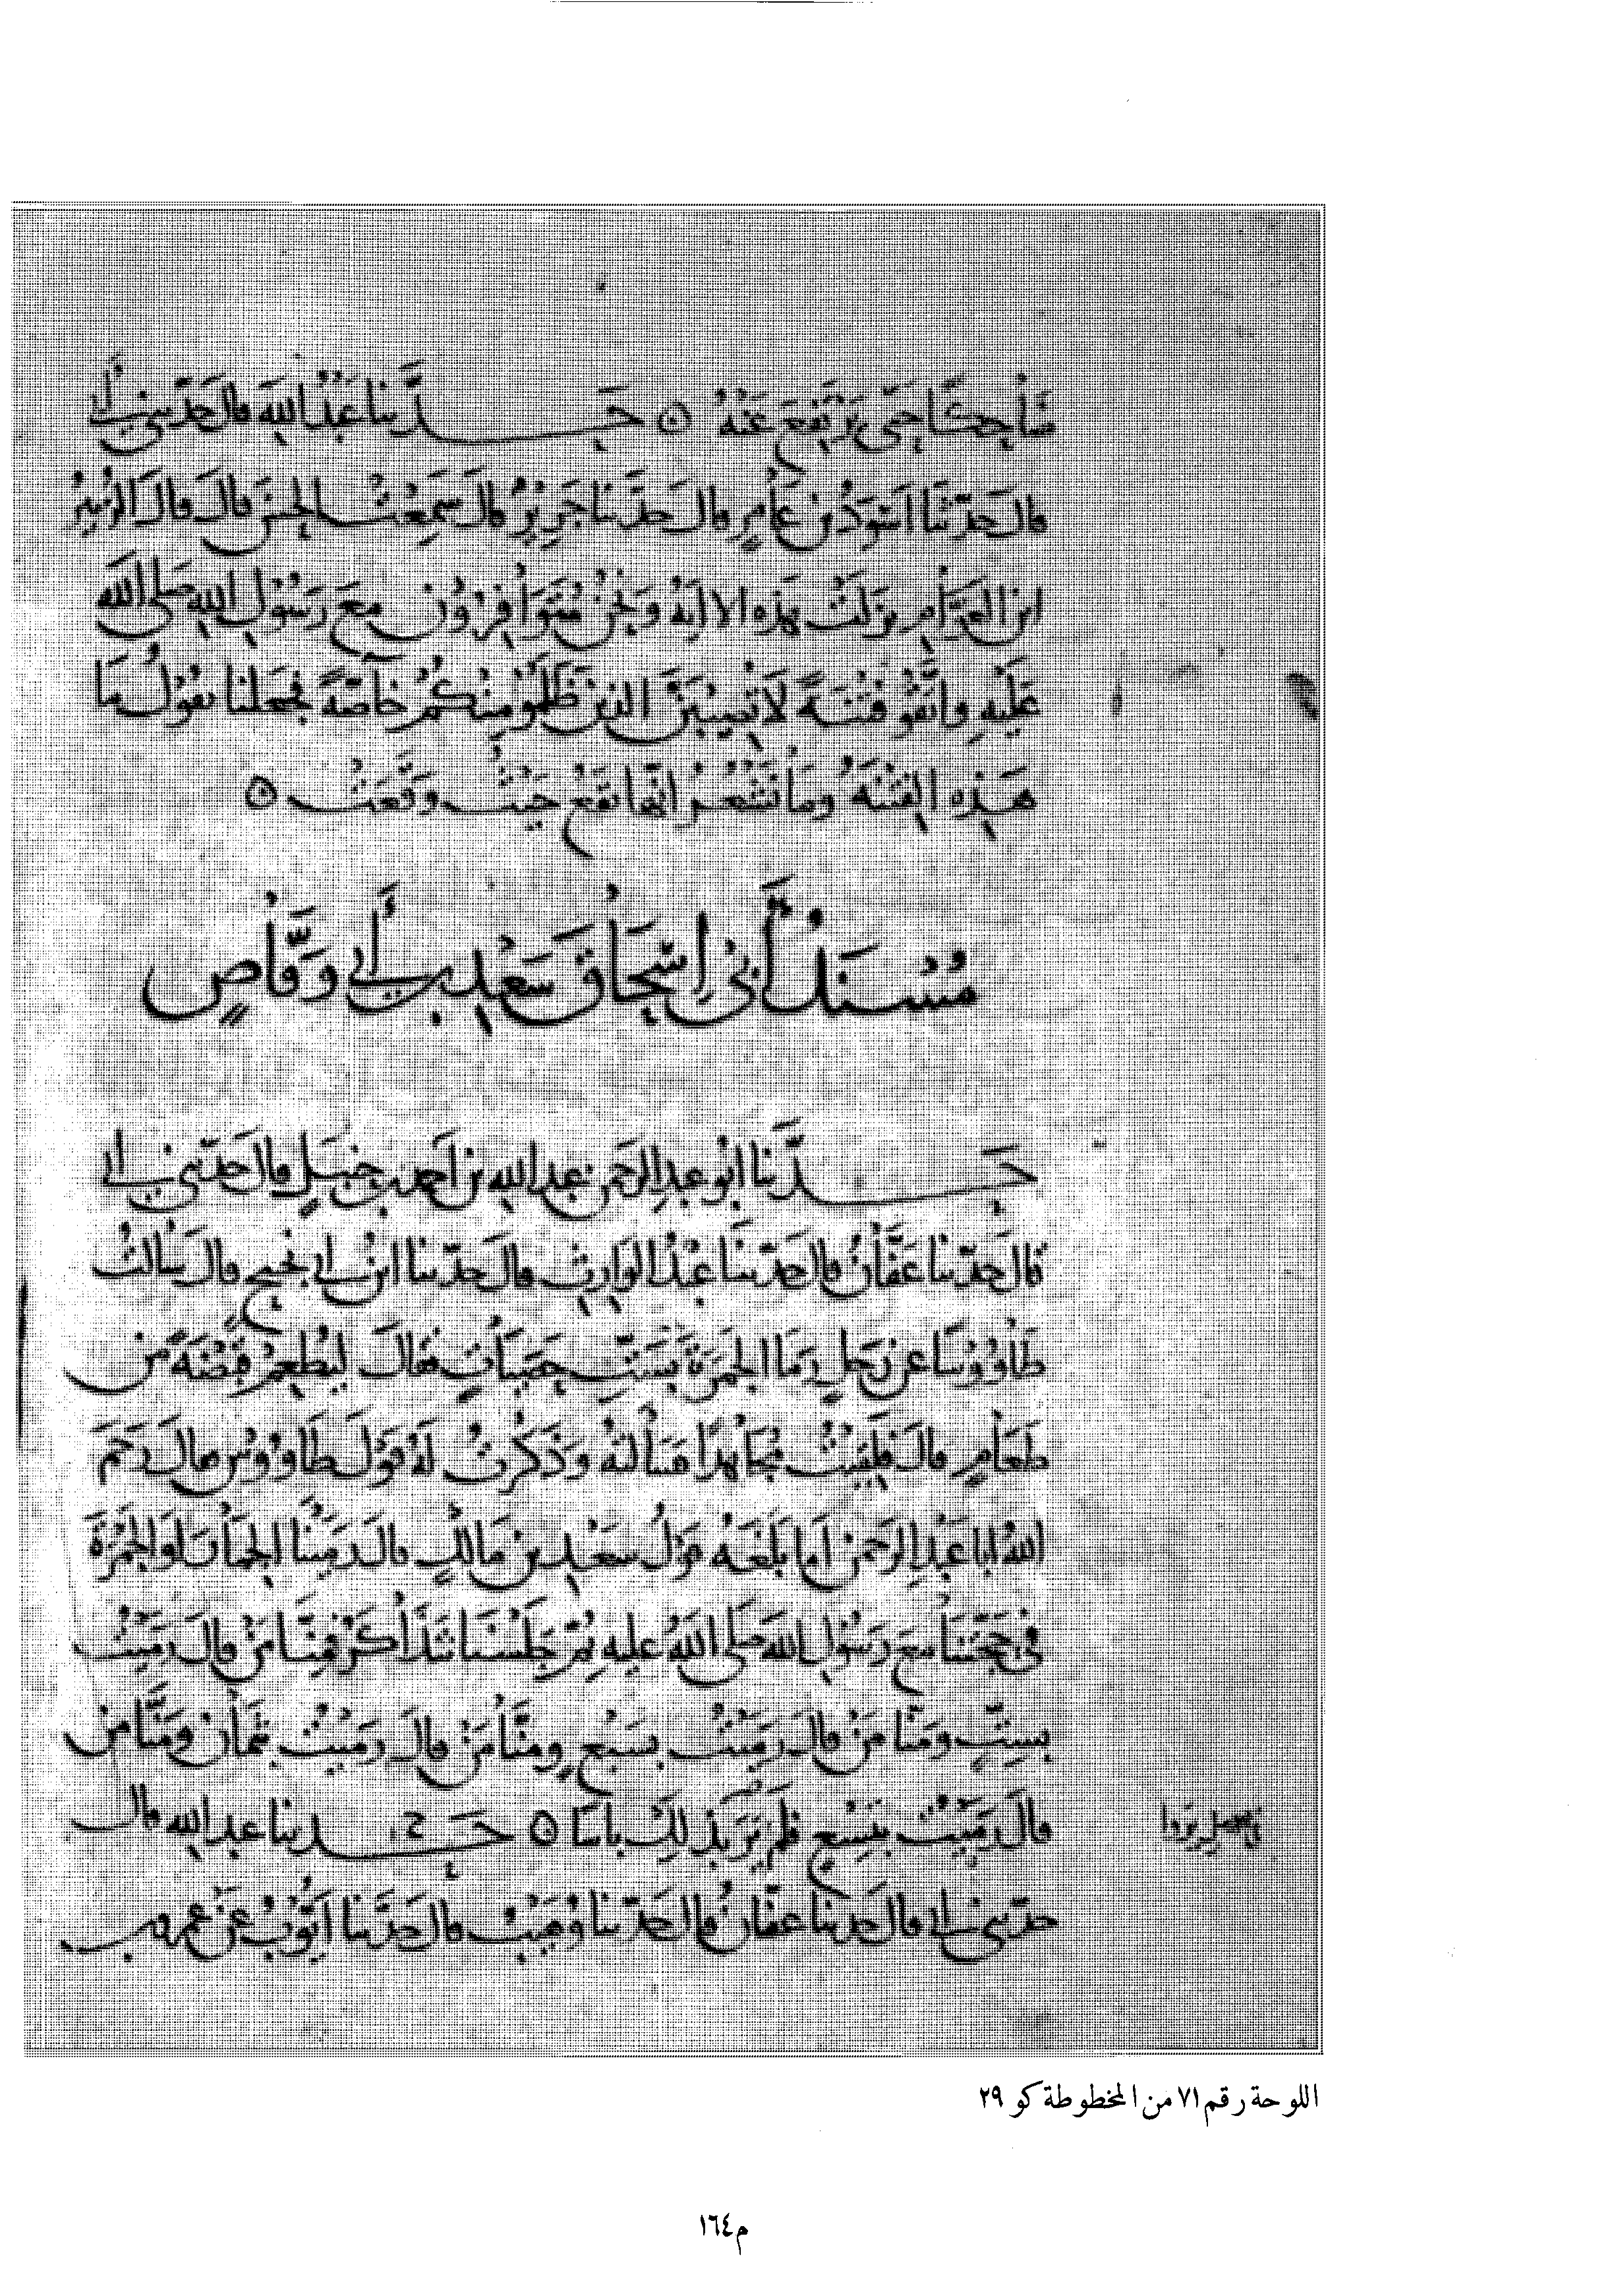 ضاحكا حتى يرتفع عنه ۞ حدثنا عبد الله قال حدثني أبي
قال حدثنا أسود بن عامر قال حدثنا جرير قال سمعت الحسن قال قال الزبير
ابن العوام نزلت هذه الاية ونحن متوافرون مع رسول الله صلى الله
عليه واتقو فتنة لا تصيبن الذين ظلمو منكم خاصة فجعلنا نقول ما
هذه الفتنة وما نشعر انها تقع حيث وقعت ۞
مسند أبي إسحاق سعد بن أبي وقاص
حدثنا ابو عبد الرحمن عبد الله بن احمد بن حنبل قال حدثني أبي
قال حدثنا عفان قال حدثنا عبد الوارث قال حدثنا ابن أبي نجيح قال سالت
طاووسا عن رجل رما الجمرة بست حصيات فقال ليطعم قبضة من
طعام قال فلقيت مجاهدا فسألته وذكرت له قول طاووس فقال رحم
الله ابا عبد الرحمن أما بلغه قول سعد بن مالك قال رمينا الجمار او الجمرة
في حجتنا مع رسول الله صلى الله عليه ثم جلسنا نتذاكر فمنا من قال رميت
بست ومنا من قال رميت بسبع ومنا من قال رميت بثمان ومنا من
قال رميت بتسع فلم نر بذلك باسا ۞ حدثنا عبد الله قال
حدثني أبي قال حدثنا عفان قال حدثنا وهيب قال حدثنا أيوب عن عمرو بن
اللوحة رقم ٧١ من المخطوطة كو ٢٩
م١٦٤